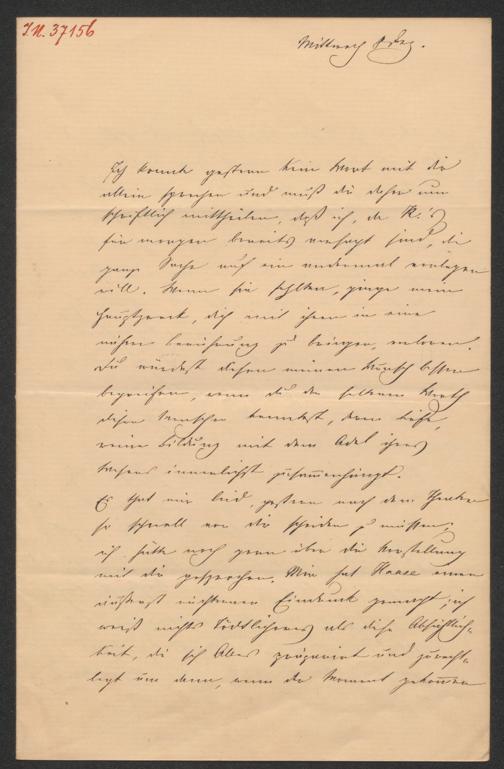 I.N. 37156
Mittwoch 8 Dez.
Ich konnte gestern kein Wort mit dir
allein sprechen und muß dir daher nun
schriftlich mittheilen, daß ich, da K.'s
für morgen bereits versagt sind, die
ganze Sache auf ein andermal verlegen
will. Wenn sie fehlten, ginge mein
Hauptzweck, dich mit ihnen in eine
nähere Berührung zu bringen, verloren.
Du würdest diesen meinen Wunsch besser
begreifen, wenn du den seltenen Werth
dieser Menschen kenntest, deren tiefe,
reine Bildung mit dem Adel ihres
Wesens innerlichst zusammenhängt.
Es that mir leid, gestern nach dem Theater
so schnell von dir scheiden zu müssen;
ich hätte noch gern über die Vorstellung
mit dir gesprochen. Mir hat Haase einen
äußerst nüchternen Eindruck gemacht; ich
weiß nichts Tödtlicheres als diese Absichtlich-
keit, die sich Alles präparirt und zurecht-
legt um dann, wenn der Moment gekommen